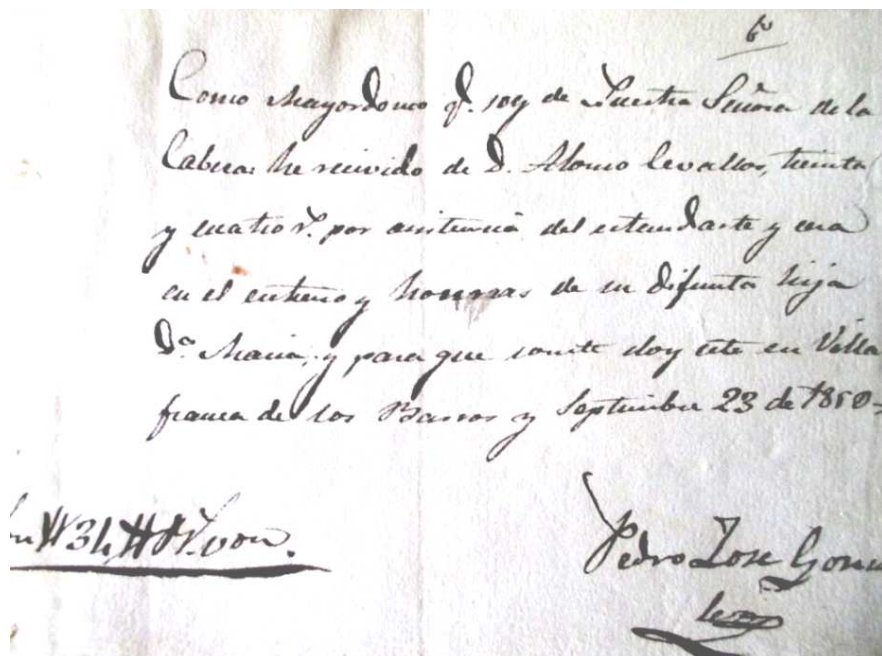 Como Mayordomo q.e soy de Nuestra Señora de la
Cabeza: he recivido de D. Alonso Cevallos, treinta
y cuatro r.s por asistencia del estandarte y cera
en el entierro y honrras de su difunta hija
D.a Maria; y para que conste doy este en Villa
franca de los Barros y Septiembre 23 de 1850=
Son # 34 # r.s von.
Pedro Jose Gonza
lez